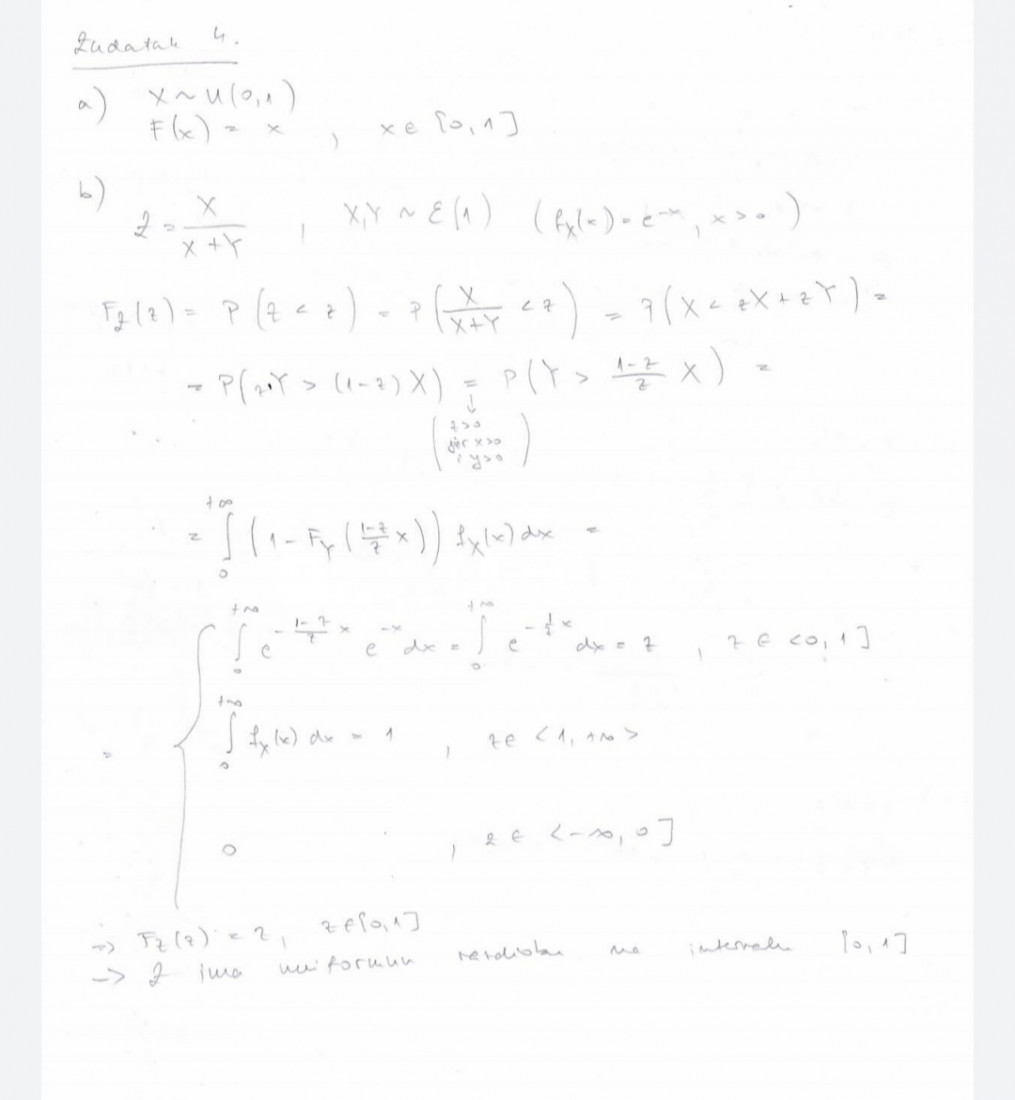 Zadatak 4.
a) X ~ U(0,1)
F(x) = x , x ∈ [0,1]
b) Z = X/(X+Y) , X,Y ~ E(1) (f_X(x) = e^{-x}, x>0)
F_Z(z) = P(Z < z) = P(X/(X+Y) < z) = P(X < zX + zY) =
= P(zY > (1-z)X) = P(Y > (1-z)/z X) =
↓
(z>0
jer x>0
i y>0)
= ∫_0^{+∞} (1 - F_Y((1-z)/z x)) f_X(x) dx =
= { ∫_0^{+∞} e^{-(1-z)/z x} e^{-x} dx = ∫_0^{+∞} e^{-1/z x} dx = z , z ∈ <0,1]
∫_0^{+∞} f_X(x) dx = 1 , z ∈ <1,+∞>
0 , z ∈ <-∞,0]
=> F_Z(z) = z, z ∈ [0,1]
-> Z ima uniformnu razdiobu na intervalu [0,1]